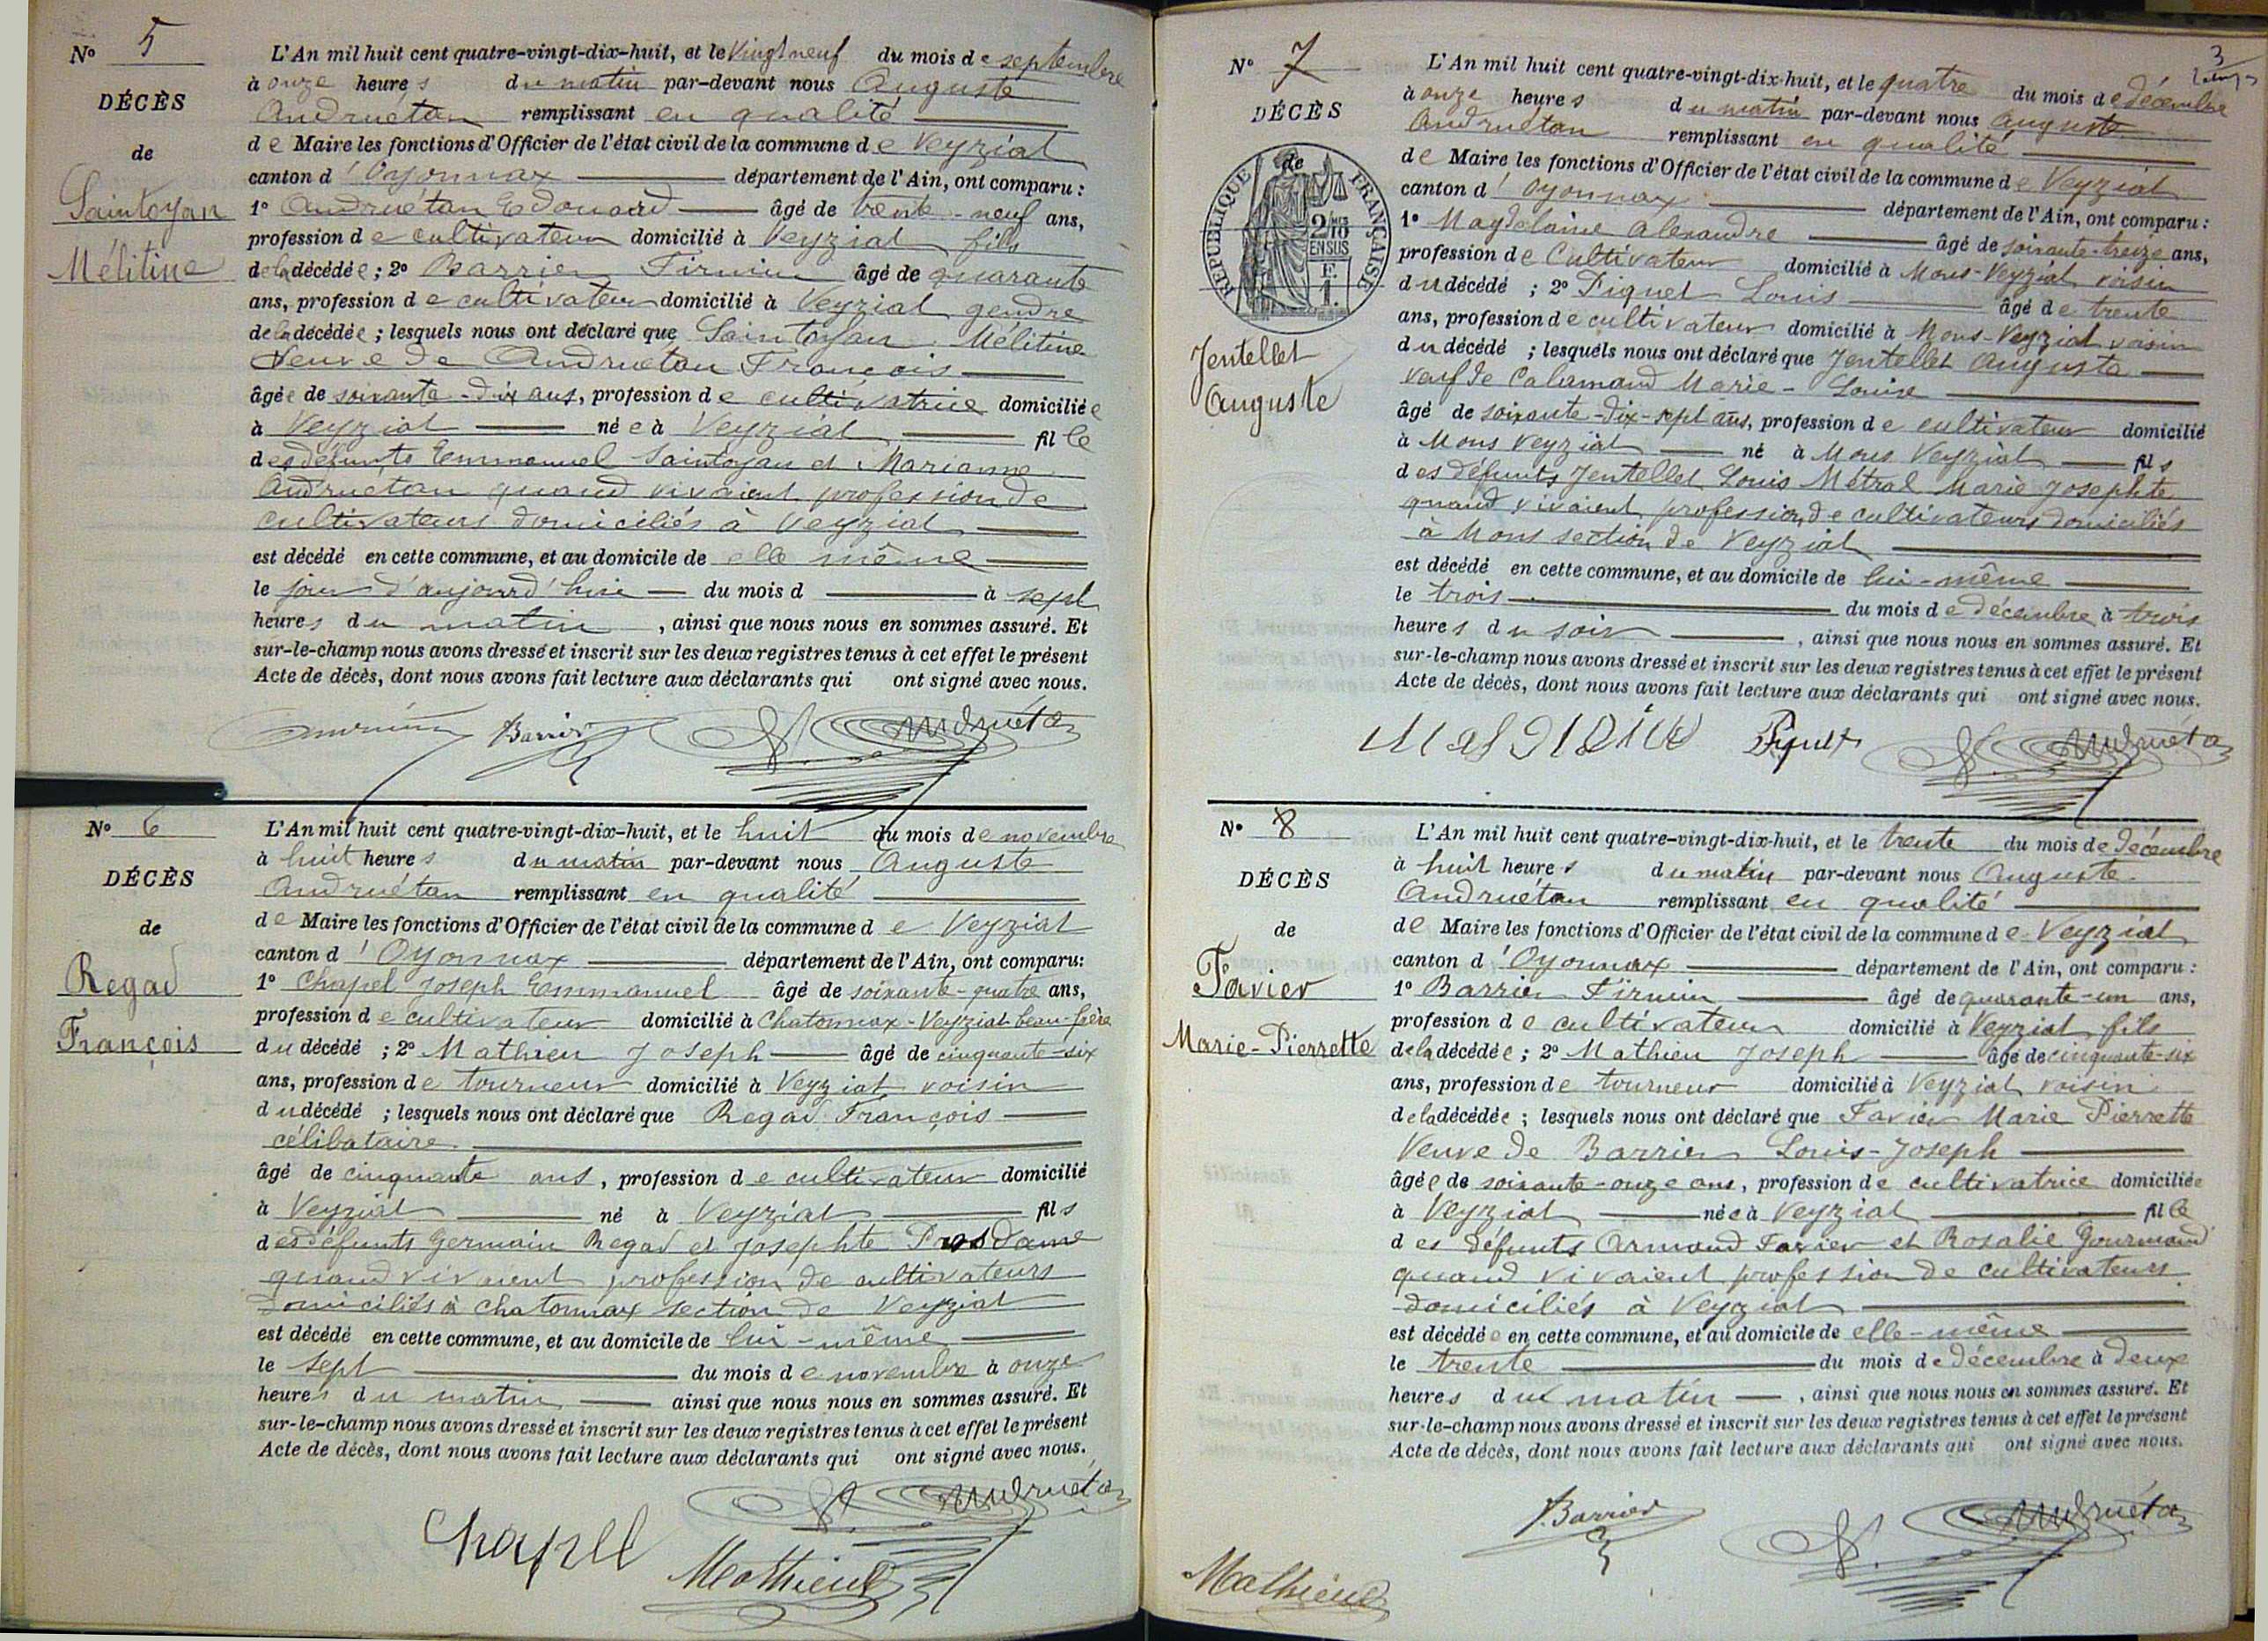 Nº 5
DÉCÈS
de
Saintoyan
Mélitine
L'An mil huit cent quatre-vingt-dix-huit, et le Vingt neuf du mois de septembre
à onze heures du matin par-devant nous Auguste
Andruétan remplissant en qualité
de Maire les fonctions d'Officier de l'état civil de la commune de Veyziat
canton d'Oyonnax département de l'Ain, ont comparu :
1º Andruétan Edouard âgé de trente-neuf ans,
profession de cultivateur domicilié à Veyziat fils
de la décédée ; 2º Barrier Firmin âgé de quarante
ans, profession de cultivateur domicilié à Veyziat gendre
de la décédée ; lesquels nous ont déclaré que Saintoyan Mélitine
Veuve de Andruétan François
âgée de soixante-dix ans, profession de cultivatrice domiciliée
à Veyziat née à Veyziat fille
des défunts Emmanuel Saintoyan et Marianne
Andruétan quand vivaient profession de
cultivateurs domiciliés à Veyziat
est décédé en cette commune, et au domicile de elle même
le jour d'aujourd'hui du mois d à sept
heures du matin, ainsi que nous nous en sommes assuré. Et
sur-le-champ nous avons dressé et inscrit sur les deux registres tenus à cet effet le présent
Acte de décès, dont nous avons fait lecture aux déclarants qui ont signé avec nous.
Barrier Andruétan
Nº 6
DÉCÈS
de
Regad
François
L'An mil huit cent quatre-vingt-dix-huit, et le huit du mois de novembre
à huit heures du matin par-devant nous Auguste
Andruétan remplissant en qualité
de Maire les fonctions d'Officier de l'état civil de la commune de Veyziat
canton d'Oyonnax département de l'Ain, ont comparu:
1º Chapel Joseph Emmanuel âgé de soixante-quatre ans,
profession de cultivateur domicilié à Chatonnax-Veyziat beau-frère
du décédé ; 2º Mathieu Joseph âgé de cinquante-six
ans, profession de tourneur domicilié à Veyziat voisin
du décédé ; lesquels nous ont déclaré que Regad François
célibataire.
âgé de cinquante ans, profession de cultivateur domicilié
à Veyziat né à Veyziat fils
des défunts Germain Regad et Josephte
quand vivaient profession de cultivateurs
domiciliés à Chatonnax section de Veyziat
est décédé en cette commune, et au domicile de lui-même
le sept du mois de novembre à onze
heures du matin ainsi que nous nous en sommes assuré. Et
sur-le-champ nous avons dressé et inscrit sur les deux registres tenus à cet effet le présent
Acte de décès, dont nous avons fait lecture aux déclarants qui ont signé avec nous.
Andruétan
Chapel
Mathieu
3
Nº 7
DÉCÈS
de
RÉPUBLIQUE FRANÇAISE
2/10
EN SUS
F.
1.
Jentellet
Auguste
L'An mil huit cent quatre-vingt-dix-huit, et le quatre du mois de décembre
à onze heures du matin par-devant nous Auguste
Andruétan remplissant en qualité
de Maire les fonctions d'Officier de l'état civil de la commune de Veyziat
canton d'Oyonnax département de l'Ain, ont comparu :
1º Magdelaine Alexandre âgé de soixante-treize ans,
profession de Cultivateur domicilié à Mons-Veyziat voisin
du décédé ; 2º Piquet Louis âgé de trente
ans, profession de cultivateur domicilié à Mons-Veyziat voisin
du décédé ; lesquels nous ont déclaré que Jentellet Auguste
veuf de Calamand Marie-Louise
âgé de soixante-dix-sept ans, profession de cultivateur domicilié
à Mons Veyziat né à Mons Veyziat fils
des défunts Jentellet Louis Métral Marie Josephte
quand vivaient profession de cultivateurs domiciliés
à Mons section de Veyziat
est décédé en cette commune, et au domicile de lui-même
le trois du mois de décembre à trois
heures du soir, ainsi que nous nous en sommes assuré. Et
sur-le-champ nous avons dressé et inscrit sur les deux registres tenus à cet effet le présent
Acte de décès, dont nous avons fait lecture aux déclarants qui ont signé avec nous.
Andruétan
Nº 8
DÉCÈS
de
Favier
Marie-Pierrette
L'An mil huit cent quatre-vingt-dix-huit, et le trente du mois de Décembre
à huit heures du matin par-devant nous Auguste
Andruétan remplissant en qualité
de Maire les fonctions d'Officier de l'état civil de la commune de Veyziat
canton d'Oyonnax département de l'Ain, ont comparu :
1º Barrier Firmin âgé de quarante-un ans,
profession de cultivateur domicilié à Veyziat fils
de la décédée ; 2º Mathieu Joseph âgé de cinquante-six
ans, profession de tourneur domicilié à Veyziat voisin
de la décédée ; lesquels nous ont déclaré que Favier Marie Pierrette
Veuve de Barrier Louis-Joseph
âgée de soixante-onze ans, profession de cultivatrice domiciliée
à Veyziat née à Veyziat fille
des défunts Armand Favier et Rosalie Gourmand
quand vivaient profession de cultivateurs
domiciliés à Veyziat
est décédée en cette commune, et au domicile de elle-même
le trente du mois de décembre à deux
heures du matin, ainsi que nous nous en sommes assuré. Et
sur-le-champ nous avons dressé et inscrit sur les deux registres tenus à cet effet le présent
Acte de décès, dont nous avons fait lecture aux déclarants qui ont signé avec nous.
F. Barrier Andruétan
Mathieu